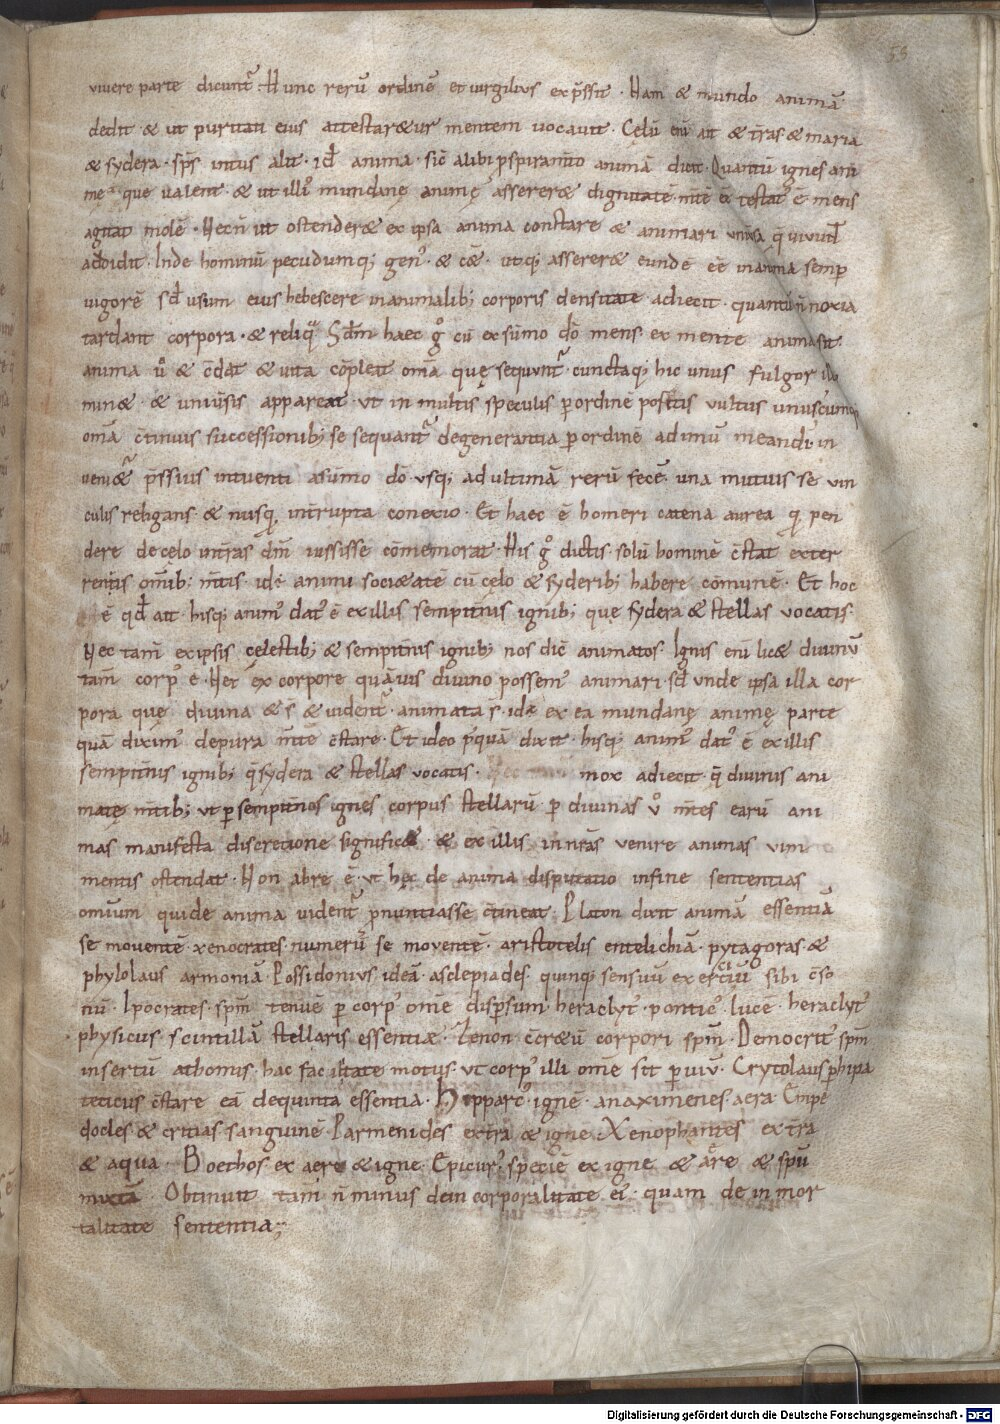 53
vivere parte dicunt᷑. Hunc rerū ordinē et virgilius exp̄ssit. Nam & mundo animā
dedit & ut puritati eius attestar&ur mentem vocavit. Cęlū eni᷑ ait & t̄ras & maria
& sydera. sp̄s intus alit. id ÷ anima. sic̄ alibi p̱ spiram̄to animā dicit. Quantū ignes ani
mę que valent. & ut illi᷒ mundanę animę asserer& dignitatē. m̄tē eē testat᷒ ē mens
agitat molē. Necn̄ ut ostender& ex ipsa anima constare & animari univ̄sa q̄ vivunt
addidit. Inde hominū pecudumq; gen᷒. & c̄&. utq; asserer& eundē eē in anima semp̱
vigorē sed usum eius hebescere in animalib; corporis densitate adiecit. quantū n̄ noxia
tardant corpora. & reliq̄. Scd̄m haec g̊ cū ex sūmo dō mens. ex mente anima sit.
anima v̊ & c̄dat & vita cōpleat om̄a quę sequunt᷑. cunctaq; hic unus fulgor illu
min& & univ̄sis appareat. ut in multis speculis p̱ ordinē positis vultus unus. cumq;
om̄a c̄tinuis successionib; se sequant᷑ degenerantia p̱ ordinē ad imū meandi. in
veni&᷑ p̄ssius intuenti a sūmo dō usq; ad ultimā rerū fecē una mutuis se vin
culis religans. & nusq̄ int̄rupta conexio. Et haec ē homeri catena aurea q̄ pen
dere de celo in t̄ras dm̄ iussisse cōmemorat. His g̊ dictis. solū hominē c̄stat ex ter
renis om̄ib; m̄tis. id ÷ animi soci&atē cū cęlo & syderib; habere cōmunē. Et hoc
ē qd̄ ait. hisq; anim᷒ dat᷒ ē ex illis sempit̄nis ignib; que sydera & stellas vocatis.
Nec tam̄ ex ipsis cęlestib; & sempit̄nis ignib; nos dic̄ animatos. Ignis eni᷑ lic& divinū
tam̄ corp᷒ ē. Nec ex corpore quāvis divino possem᷒ animari. sed unde ipsa illa cor
pora quę divina & s̄ & vident᷑ animata s̄. id ÷ ex ea mundanę animę parte
quā dixim᷒ de pura m̄te c̄stare. Et ideo p᷒quā dixit. hisq; anim᷒ dat᷒ ē ex illis
sempit̄nis ignib; q̄ sydera & stellas vocatis. mox adiecit. q̄ divinis ani
matę m̄tib; ut p̱ sempit̄nos ignes corpus stellarū. p̱ divinas v̊ m̄tes earū ani
mas manifesta discretione signific&. & ex illis in n̄ras venire animas vim
mentis ostendat. Non ab re ē. ut hęc de anima disputatio in fine sententias
omium qui de anima vident᷑ p̱nuntiasse c̄tineat. Platon dixit animā essentiā
se moventē. xenocrates numerū se moventē. aristotelis entelichiā. pytagoras &
phylolaus armoniā. Possidonius ideā. asclepiades. quinq; sensuū exercitiū sibi c̄so
nū. Ipocrates. spm̄ tenuē p̱ corp᷒ omē disp̱sum. heraclyt᷒ pontic᷒. lucē. heraclyt᷒
physicus scintillā stellaris essentiæ. Zenon c̄cr&ū corpori spm̄. Democrit᷒ spm̄
insertū athomis. hac facilitate motus. ut corp᷒ illi omē sit p̱viū. Crytolaus p̱hipa
teticus c̄stare eā de quinta essentia. Hipparc᷒. ignē. anaximenes. aera. Empe
docles & critias. sanguinē. Parmenides ex t̄ra & igne. Xenophantes ex t̄ra
& aqua. Boethos ex aere & igne. Epicur᷒. speciē ex igne & aere & spū
mixtā. Obtinuit tam̄ n̄ minus de incorporalitate ei᷒. quam de inmor
talitate sententia;
Digitalisierung gefördert durch die Deutsche Forschungsgemeinschaft - DFG